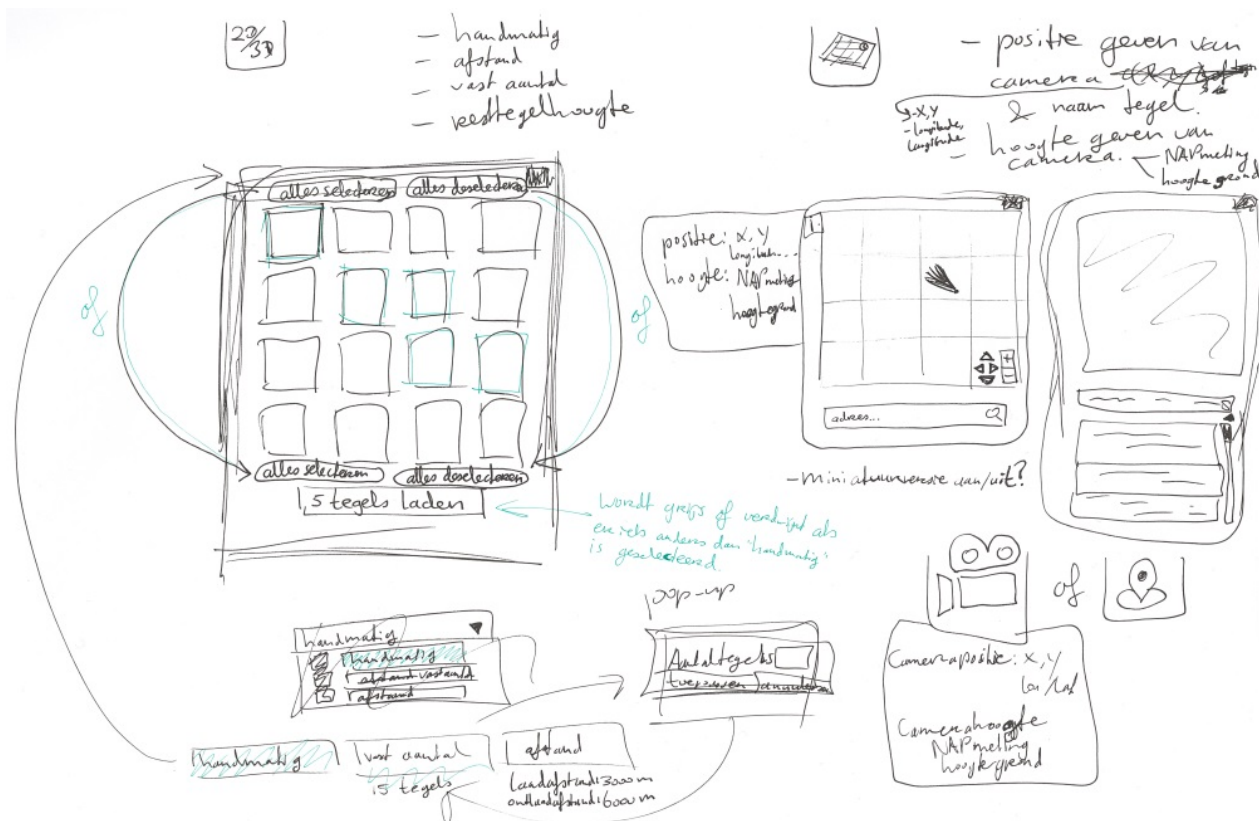 2D/3D
- handmatig
- afstand
- vast aantal
- resttegelhoogte
- positie geven van
camera
& naam tegel.
- X, Y
- longitude,
- hoogte geven van
camera.
NAP meting
hoogte grond
alles selecteren
alles deselecteren
of
of
alles selecteren
alles deselecteren
5 tegels laden
wordt grijs of verdwijnt als
er iets anders dan "handmatig"
is geselecteerd.
positie: X, Y
hoogte: NAP meting
hoogte grond
+
-
adres...
- miniatuurversie aan/uit?
handmatig
handmatig
afstand
pop-up
Aantal tegels
toepassen
annuleren
handmatig
vast aantal
15 tegels
afstand
laadafstand: 3000 m
ontlaadafstand: 6000 m
of
Camerapositie: X, Y
lon/lat
Camerahoogte
NAP meting
hoogte grond